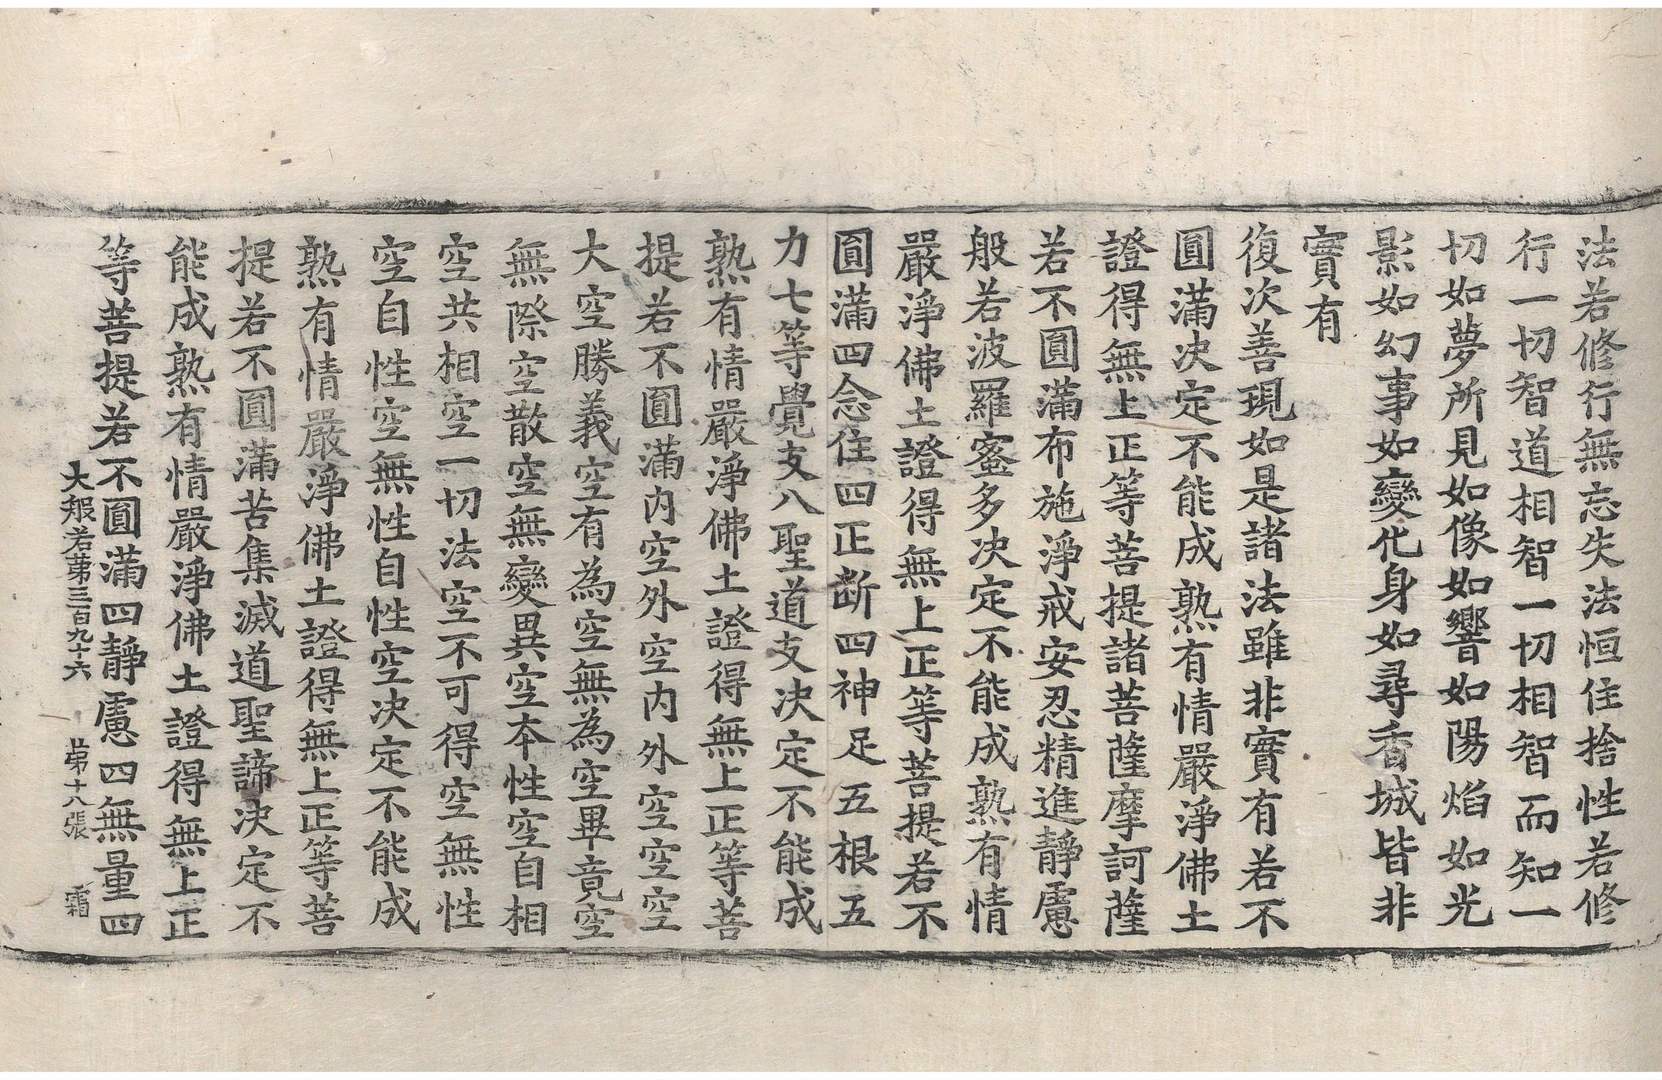 法若修行無忘失法恒住捨性若修
行一切智道相智一切相智而知一
切如夢所見如像如響如陽焰如光
影如幻事如變化身如尋香城皆非
實有
復次善現如是諸法雖非實有若不
圓滿決定不能成熟有情嚴淨佛土
證得無上正等菩提諸菩薩摩訶薩
若不圓滿布施淨戒安忍精進靜慮
般若波羅蜜多決定不能成熟有情
嚴淨佛土證得無上正等菩提若不
圓滿四念住四正斷四神足五根五
力七等覺支八聖道支決定不能成
熟有情嚴淨佛土證得無上正等菩
提若不圓滿內空外空內外空空空
大空勝義空有為空無為空畢竟空
無際空散空無變異空本性空自相
空共相空一切法空不可得空無性
空自性空無性自性空決定不能成
熟有情嚴淨佛土證得無上正等菩
提若不圓滿苦集滅道聖諦決定不
能成熟有情嚴淨佛土證得無上正
等菩提若不圓滿四靜慮四無量四
大般若第三百九十六 第十八張 霜